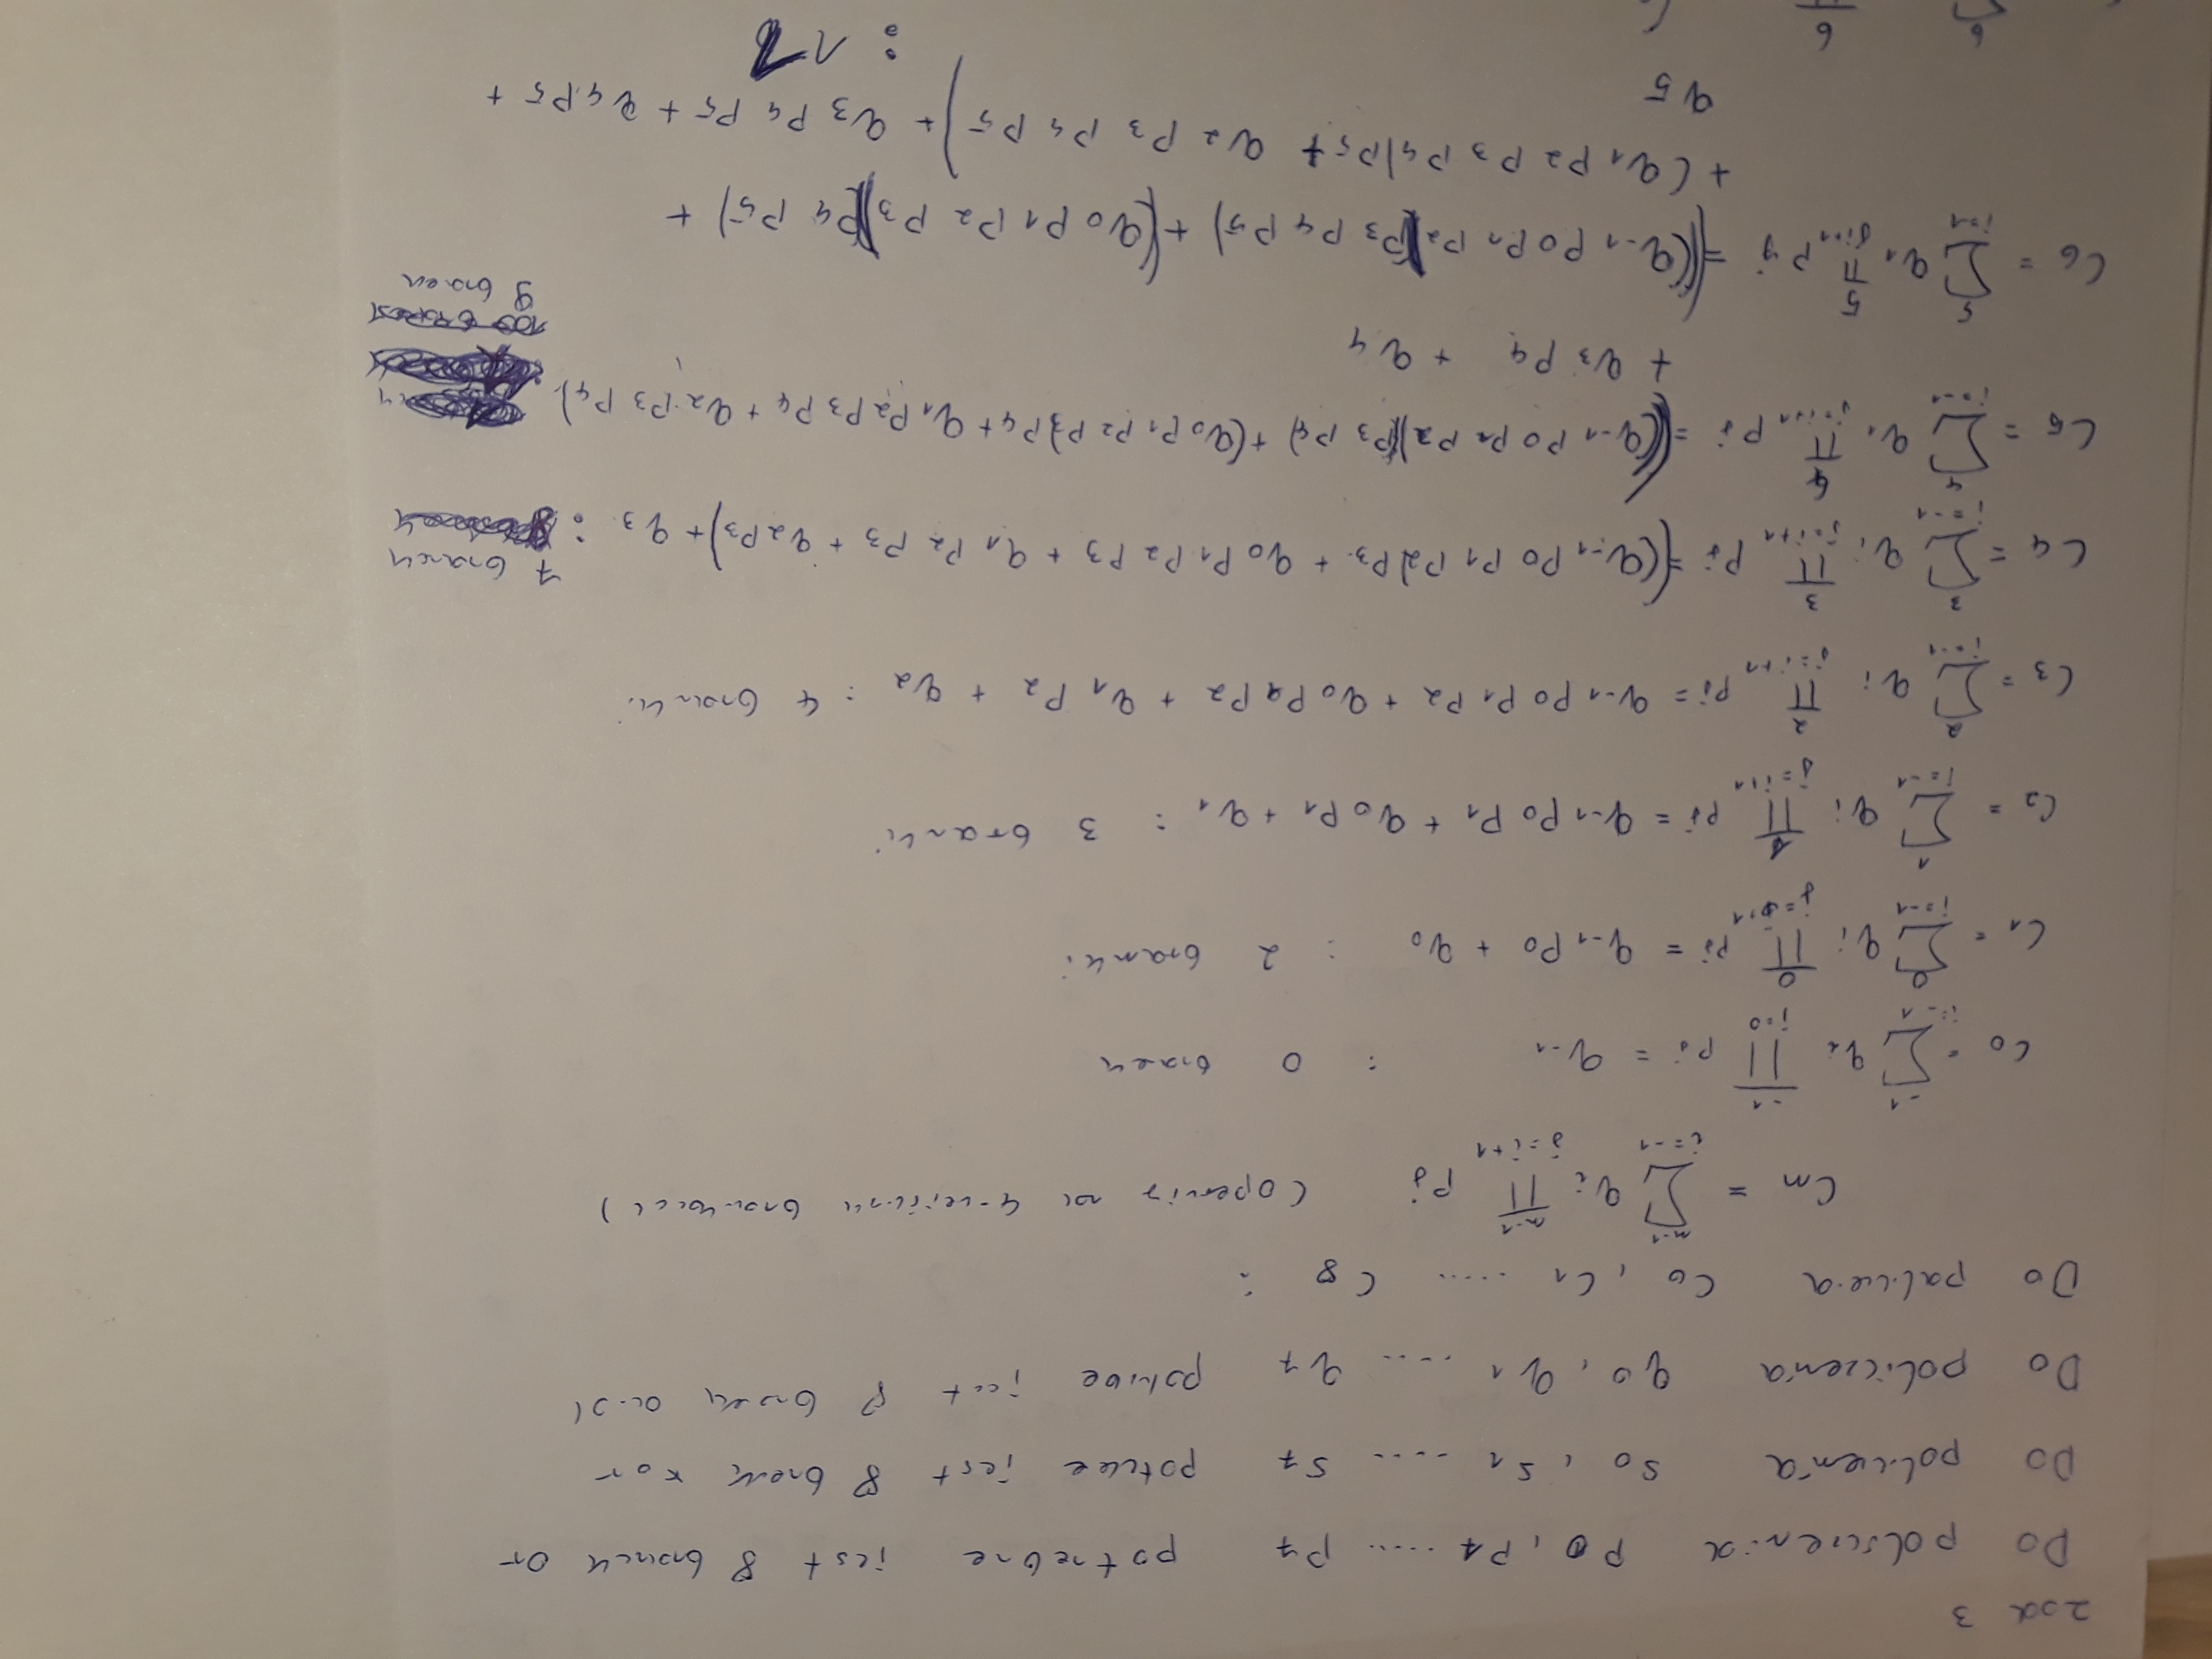 zad 3
Do policzenia p0, p1 ..... p7 potrebne jest 8 bramek or
Do policenia s0, s1 .... s7 jest 8 bramek xor
Do policzenia q0, q1 .... q7 jest 8 bramek and
Do c0, c1 ..... c8 :
cn = Σ_{i=-1}^{n-1} qi ∏_{j=i+1}^{n-1} pj (
c0 = Σ_{i=-1}^{-1} qi ∏_{j=0}^{-1} pj = q-1 : 0 bramek
c1 = Σ_{i=-1}^{0} qi ∏_{j=i+1}^{0} pj = q-1 p0 + q0 : 2 bramki
c2 = Σ_{i=-1}^{1} qi ∏_{j=i+1}^{1} pj = q-1 p0 p1 + q0 p1 + q1 : 3 bramki
c3 = Σ_{i=-1}^{2} qi ∏_{j=i+1}^{2} pj = q-1 p0 p1 p2 + q0 p1 p2 + q1 p2 + q2 : 4 bramki
c4 = Σ_{i=-1}^{3} qi ∏_{j=i+1}^{3} pj = ((q-1 p0 p1 p2) p3 + q0 p1 p2 p3 + q1 p2 p3 + q2 p3) + q3 : 7 bramek
c5 = Σ_{i=-1}^{4} qi ∏_{j=i+1}^{4} pj = ((q-1 p0 p1 p2)(p3 p4) + (q0 p1 p2 p3) p4 + q1 p2 p3 p4 + q2 p3 p4)
+ q3 p4 + q4
9 bramek
c6 = Σ_{i=-1}^{5} qi ∏_{j=i+1}^{5} pj = ((q-1 p0 p1 p2)(p3 p4 p5) + (q0 p1 p2 p3)(p4 p5) +
+ (q1 p2 p3 p4) p5 + q2 p3 p4 p5) + q3 p4 p5 + q4 p5 +
q5
: 11
6 6